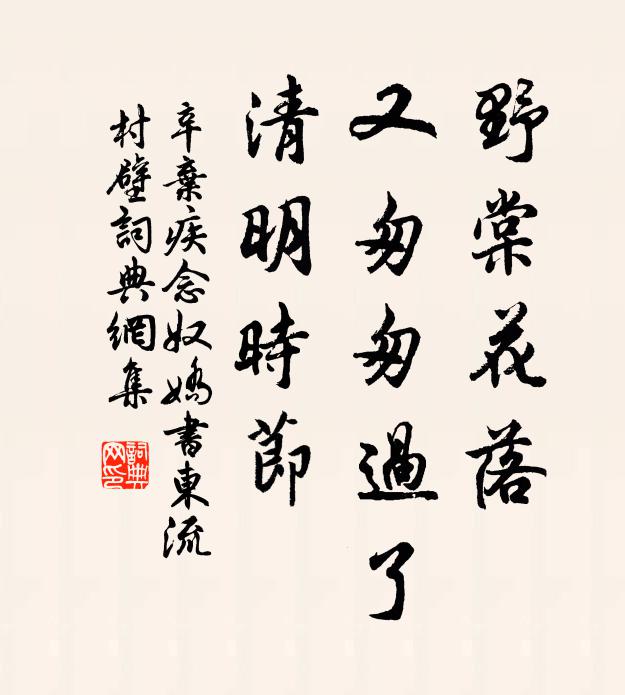 野棠花落
又匆匆過了
清明時節
辛棄疾念奴嬌書東流
村壁詞典網集
詞典
网印